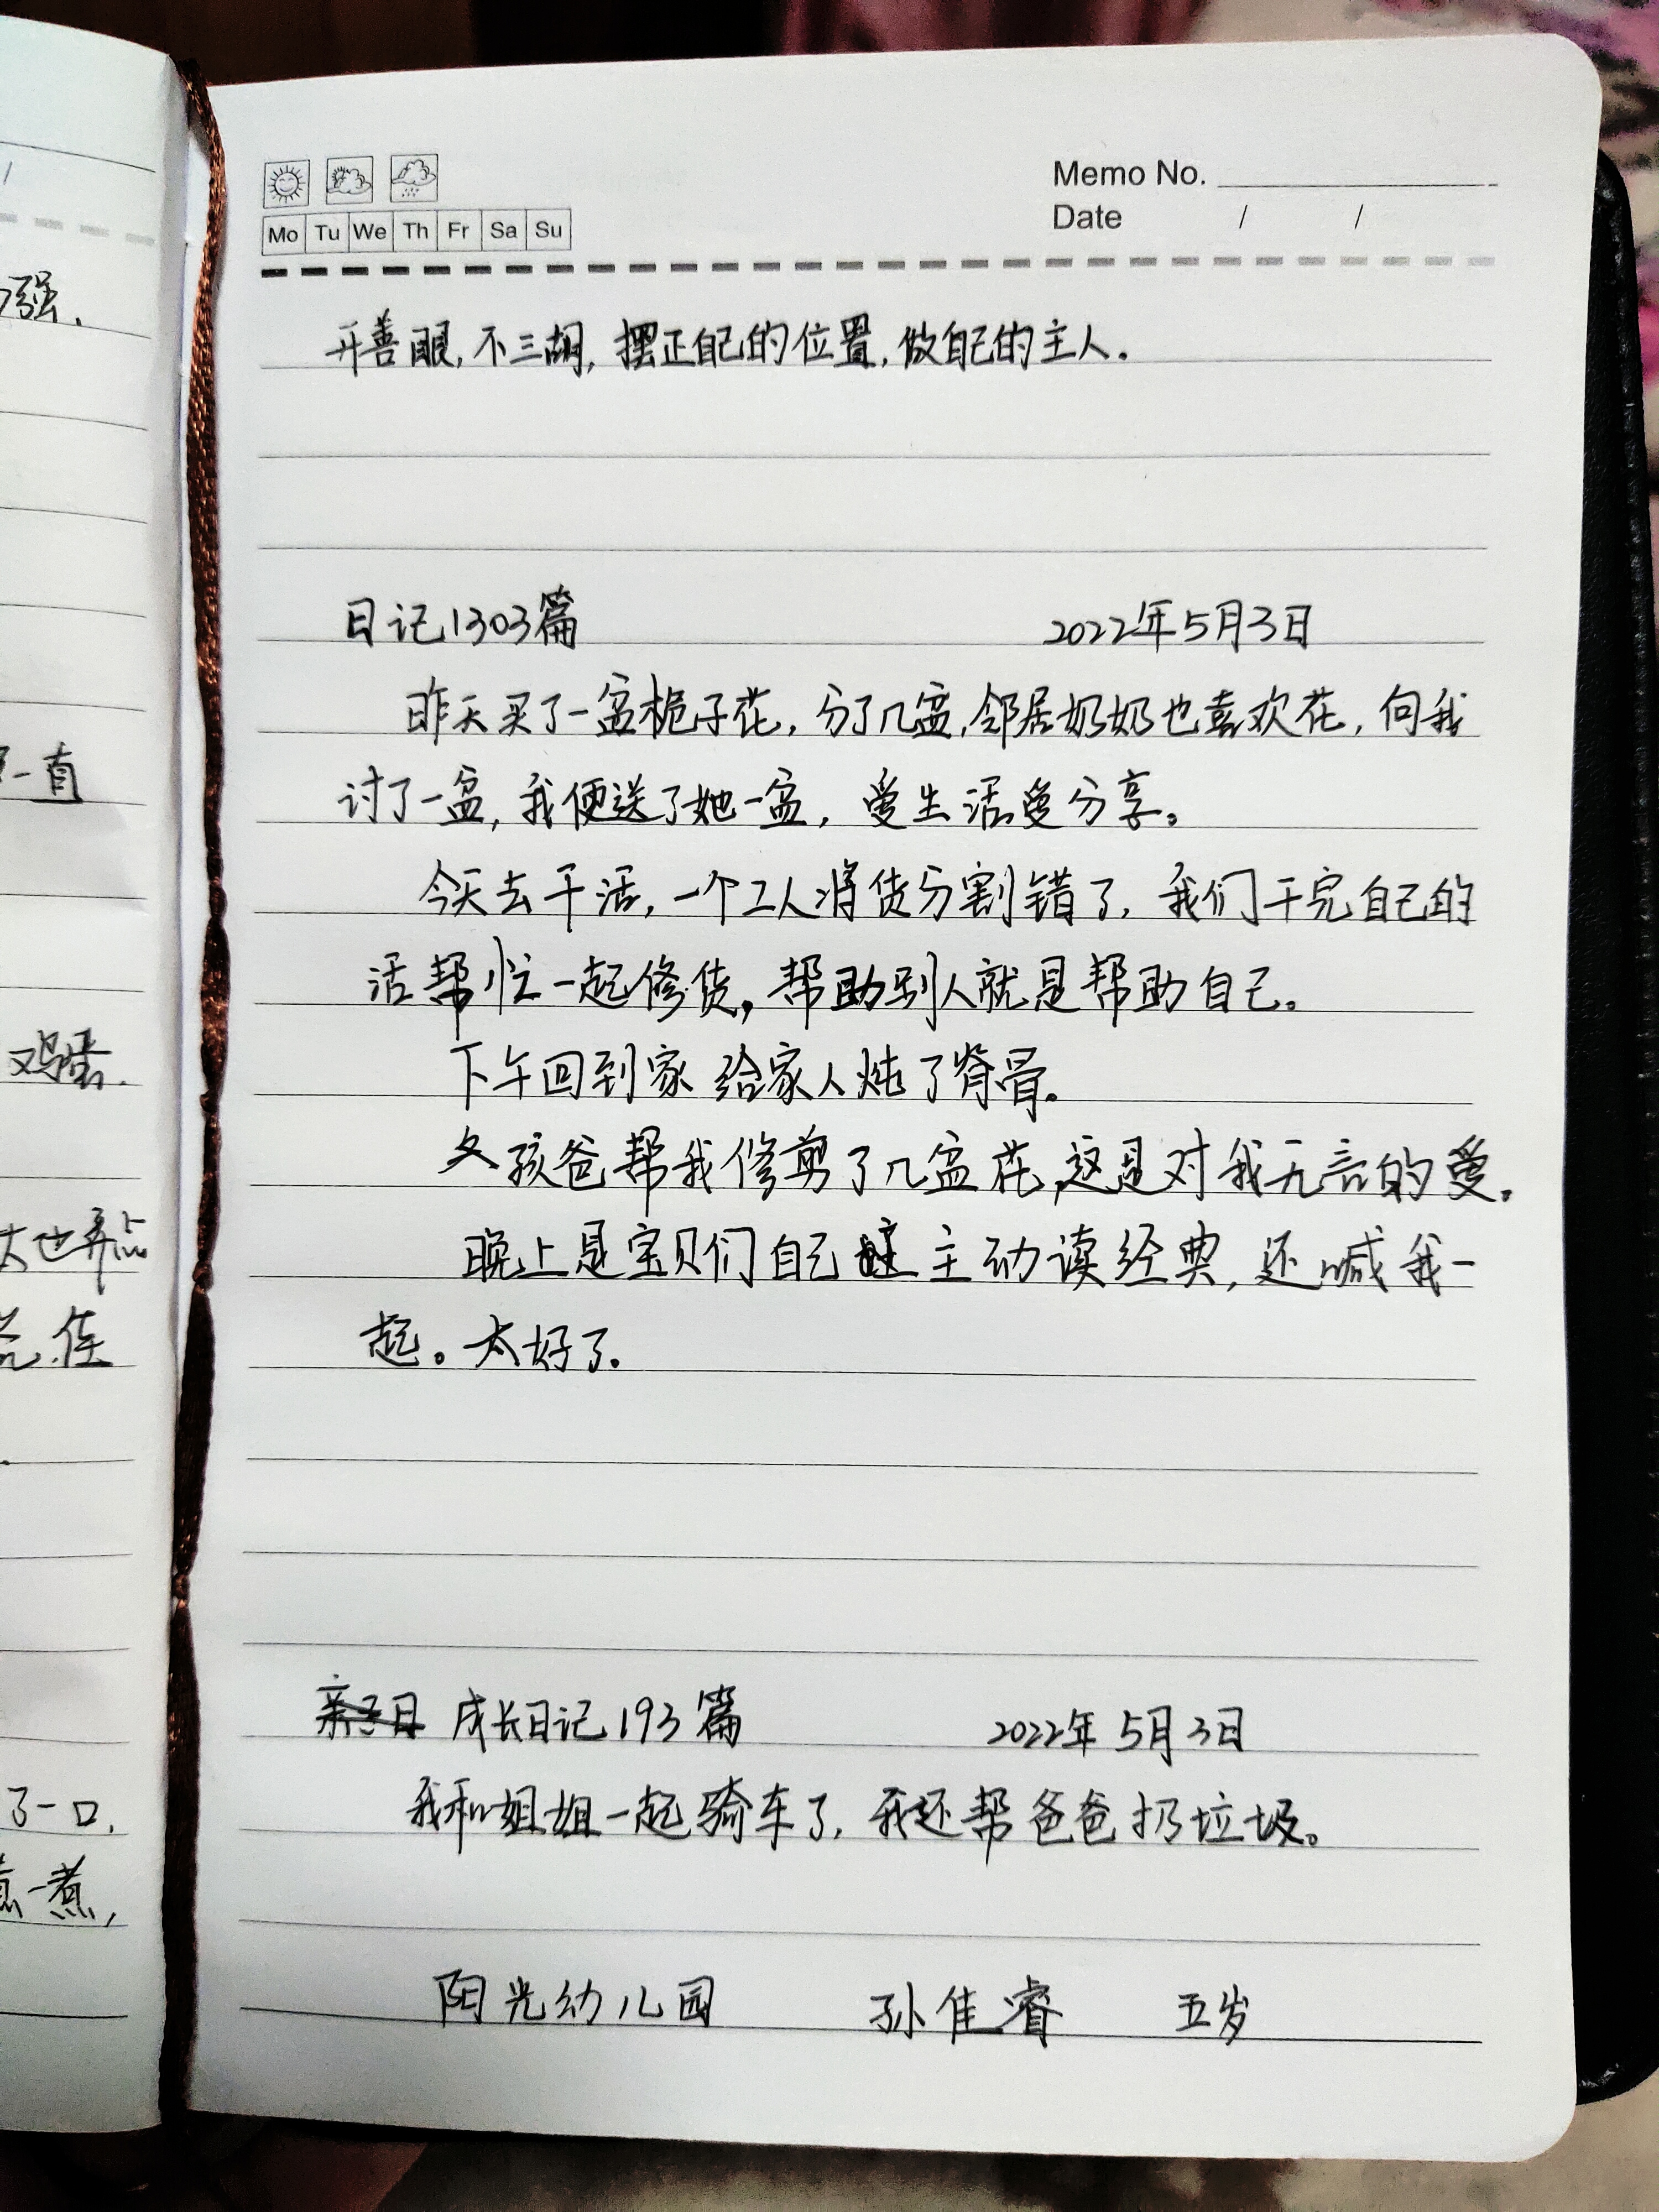 Memo No.
Mo Tu We Th Fr Sa Su
Date / /
开善眼,不三胡,摆正自己的位置,做自己的主人.
日记1303篇 2022年5月3日
昨天买了一盆栀子花,分了几盆,邻居奶奶也喜欢花,向我
讨了一盆,我便送了她一盆,爱生活爱分享。
今天去干活,一个工人将货分割错了,我们干完自己的
活帮忙一起修货,帮助别人就是帮助自己。
下午回到家给家人炖了脊骨。
孩爸帮我修剪了几盆花,这是对我无言的爱。
晚上是宝贝们自己主动读经典,还喊我一
起。太好了.
亲子日 成长日记193篇 2022年5月3日
我和姐姐一起骑车了,我还帮爸爸扔垃圾。
阳光幼儿园 孙佳睿 五岁
强.
一直
鸡蛋.
也弄点
佳
了一口,
一煮,